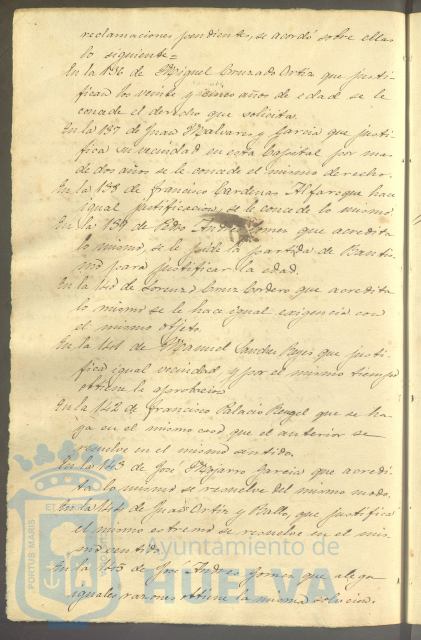 reclamaciones pendientes, se acordó sobre ellas
lo siguiente=
En la 136 de Miguel Cruzado Ortiz que justi-
fican los veinte y cinco años de edad se le
concede el derecho que solicita.
En la 137 de Juan Malvarez y Garcia que justi-
fica su vecindad en esta Capital por mas
de dos años se le concede el mismo derecho.
En la 138 de Francisco Cardenas Alfaro que hace
igual justificacion, se le concede lo mismo
En la 139 de Pedro Andres Gomez que acredita
lo mismo, se le pide la partida de Bautis-
mo para justificar la edad.
En la 140 de Lorenzo Cruz Cordero que acredita
lo mismo se le hace igual exigencia con
el mismo objeto.
En la 141 de Manuel Sanchez que justi-
fica igual vecindad y por el mismo tiempo
obtiene la aprobacion
En la 142 de Francisco Palacio Rengel que se ha-
ya en el mismo caso que el anterior se
resuelve en el mismo sentido.
En la 143 de José Mojarro Garcia que acredi-
ta lo mismo se resuelve del mismo modo.
En la 144 de Juan Ortiz y que justifica
el mismo estremo se resuelve en el mis-
mo sentido.
En la 145 de José Andres Gomez que alega
iguales razones obtiene la misma solucion.
PORTUS MARIS ET
Ayuntamiento de
HUELVA